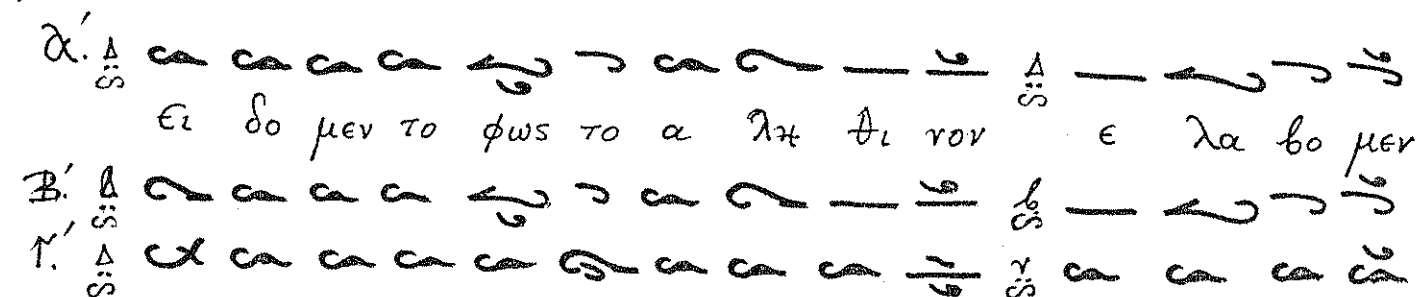 Α΄.
ει δο μεν το φως το α λη θι νον ε λα βο μεν
Β΄.
Γ΄.